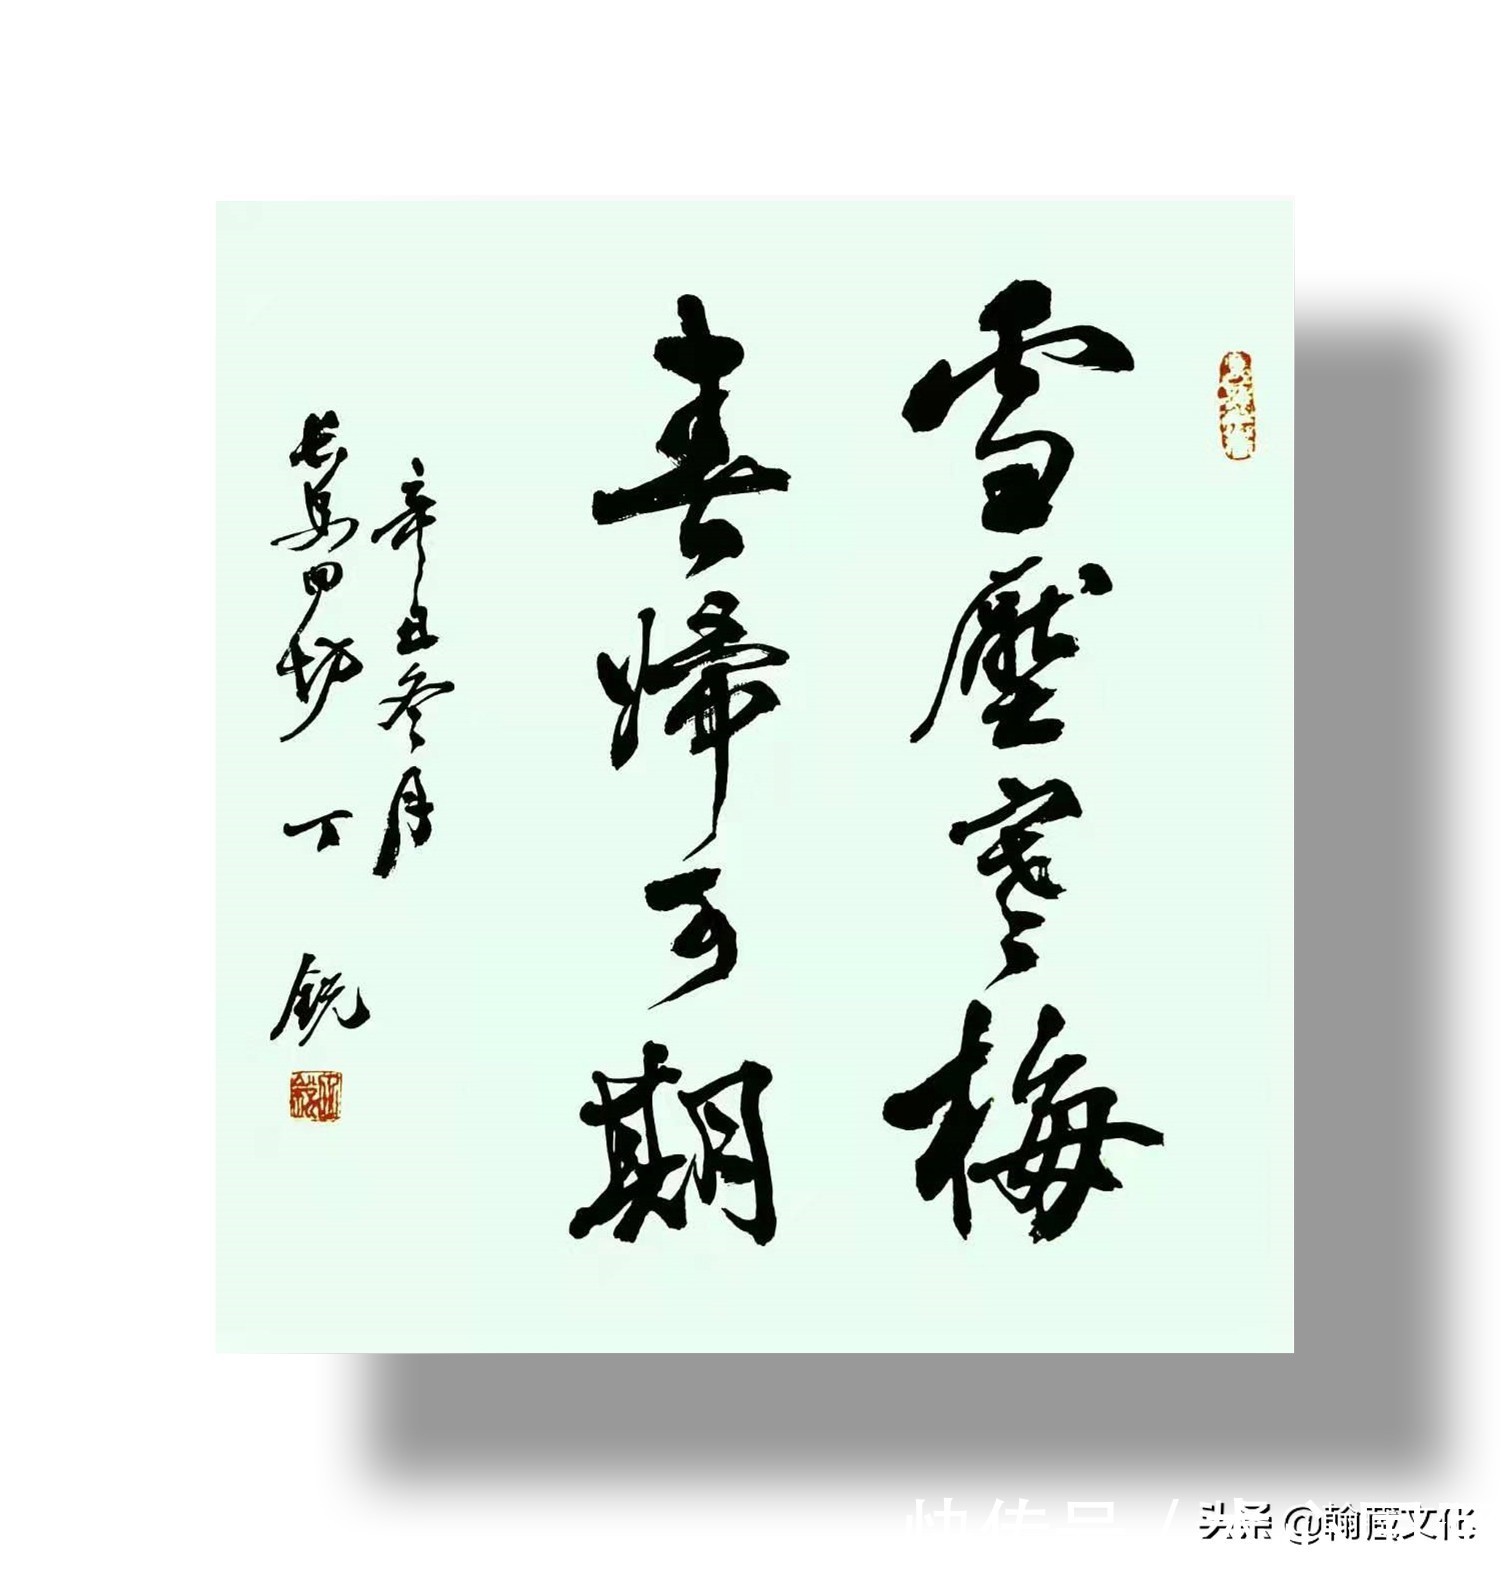 雪壓寒梅
春歸可期
辛丑冬月
長安四坊 丁 銳
头条 @翰箴文化